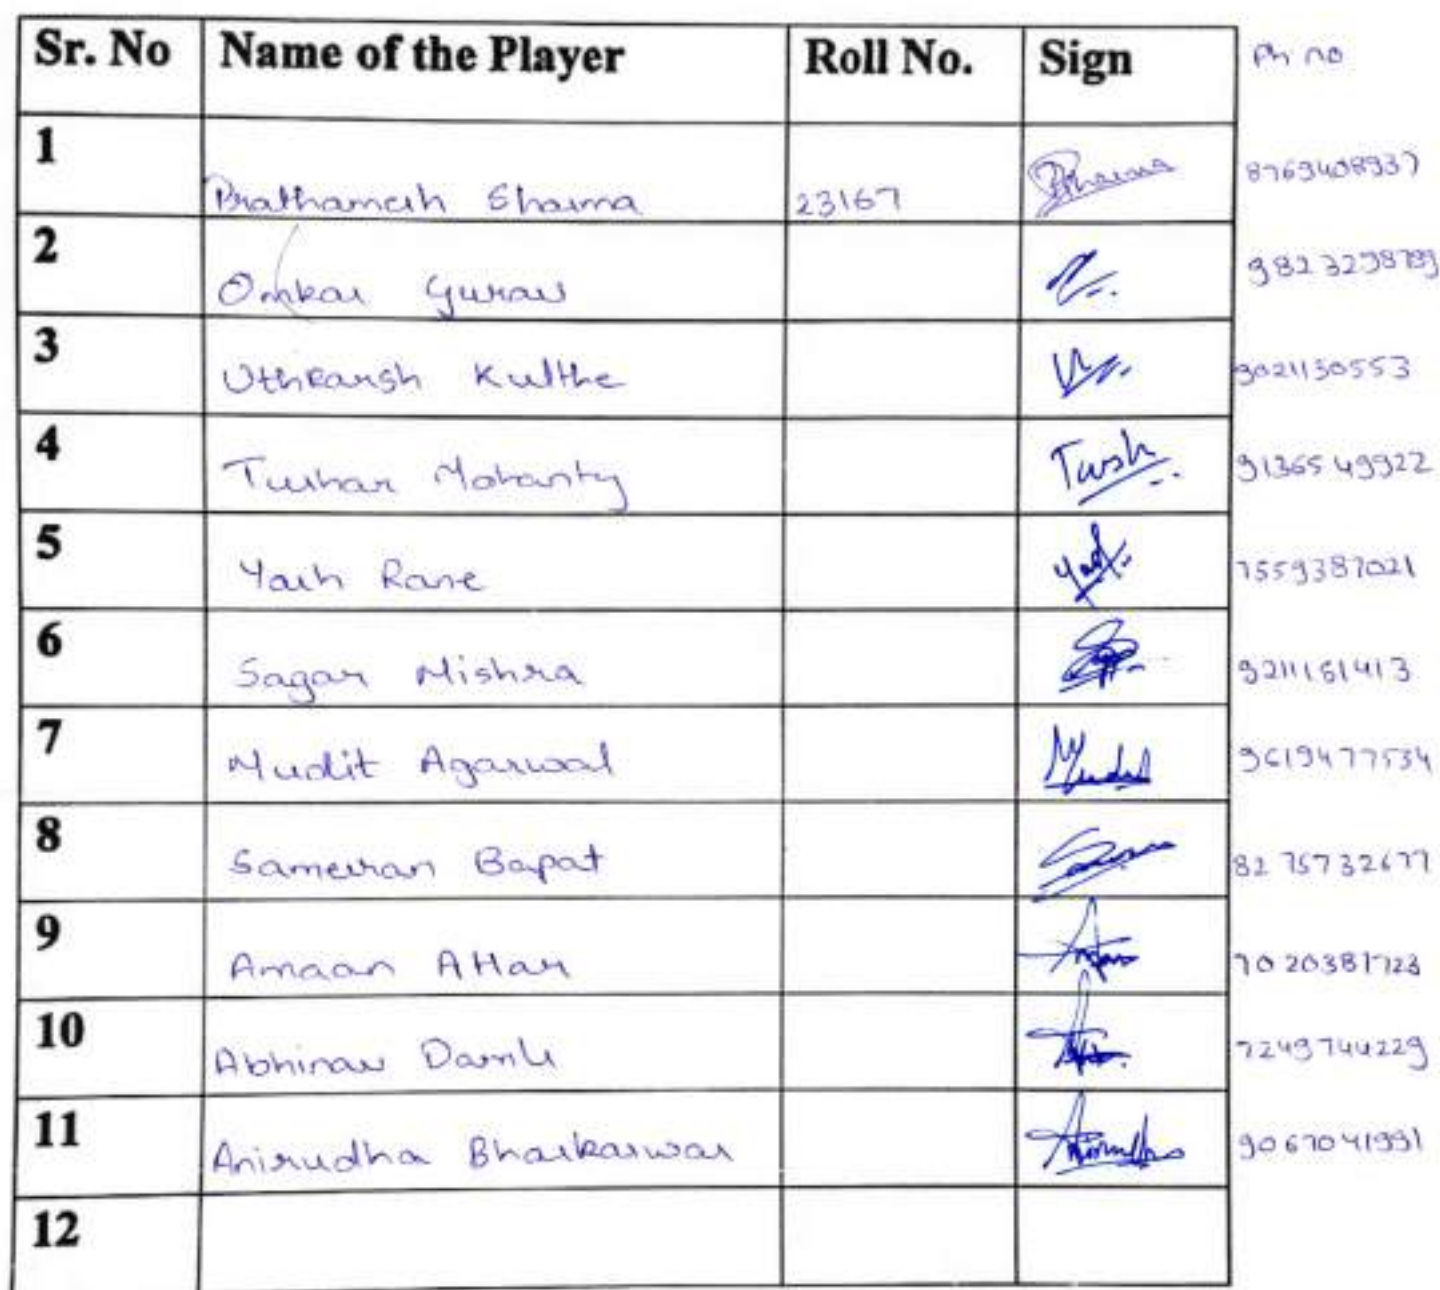 Sr. No Name of the Player Roll No. Sign Ph no
1 Prathamesh Sharma 23167 8769408937
2 Omkar Gurav 9823298789
3 Uthkarsh Kulthe 9021130553
4 Tushar Mohanty Tush 9136549922
5 Yash Rane Yash 7559387021
6 Sagar Mishra 9211151413
7 Mudit Agarwal Mudit 9619477534
8 Sameeran Bapat 8275732677
9 Amaan Attar 7020381723
10 Abhinav Damle 7249744229
11 Anirudha Bhaskarwar Anirudha 9067041991
12